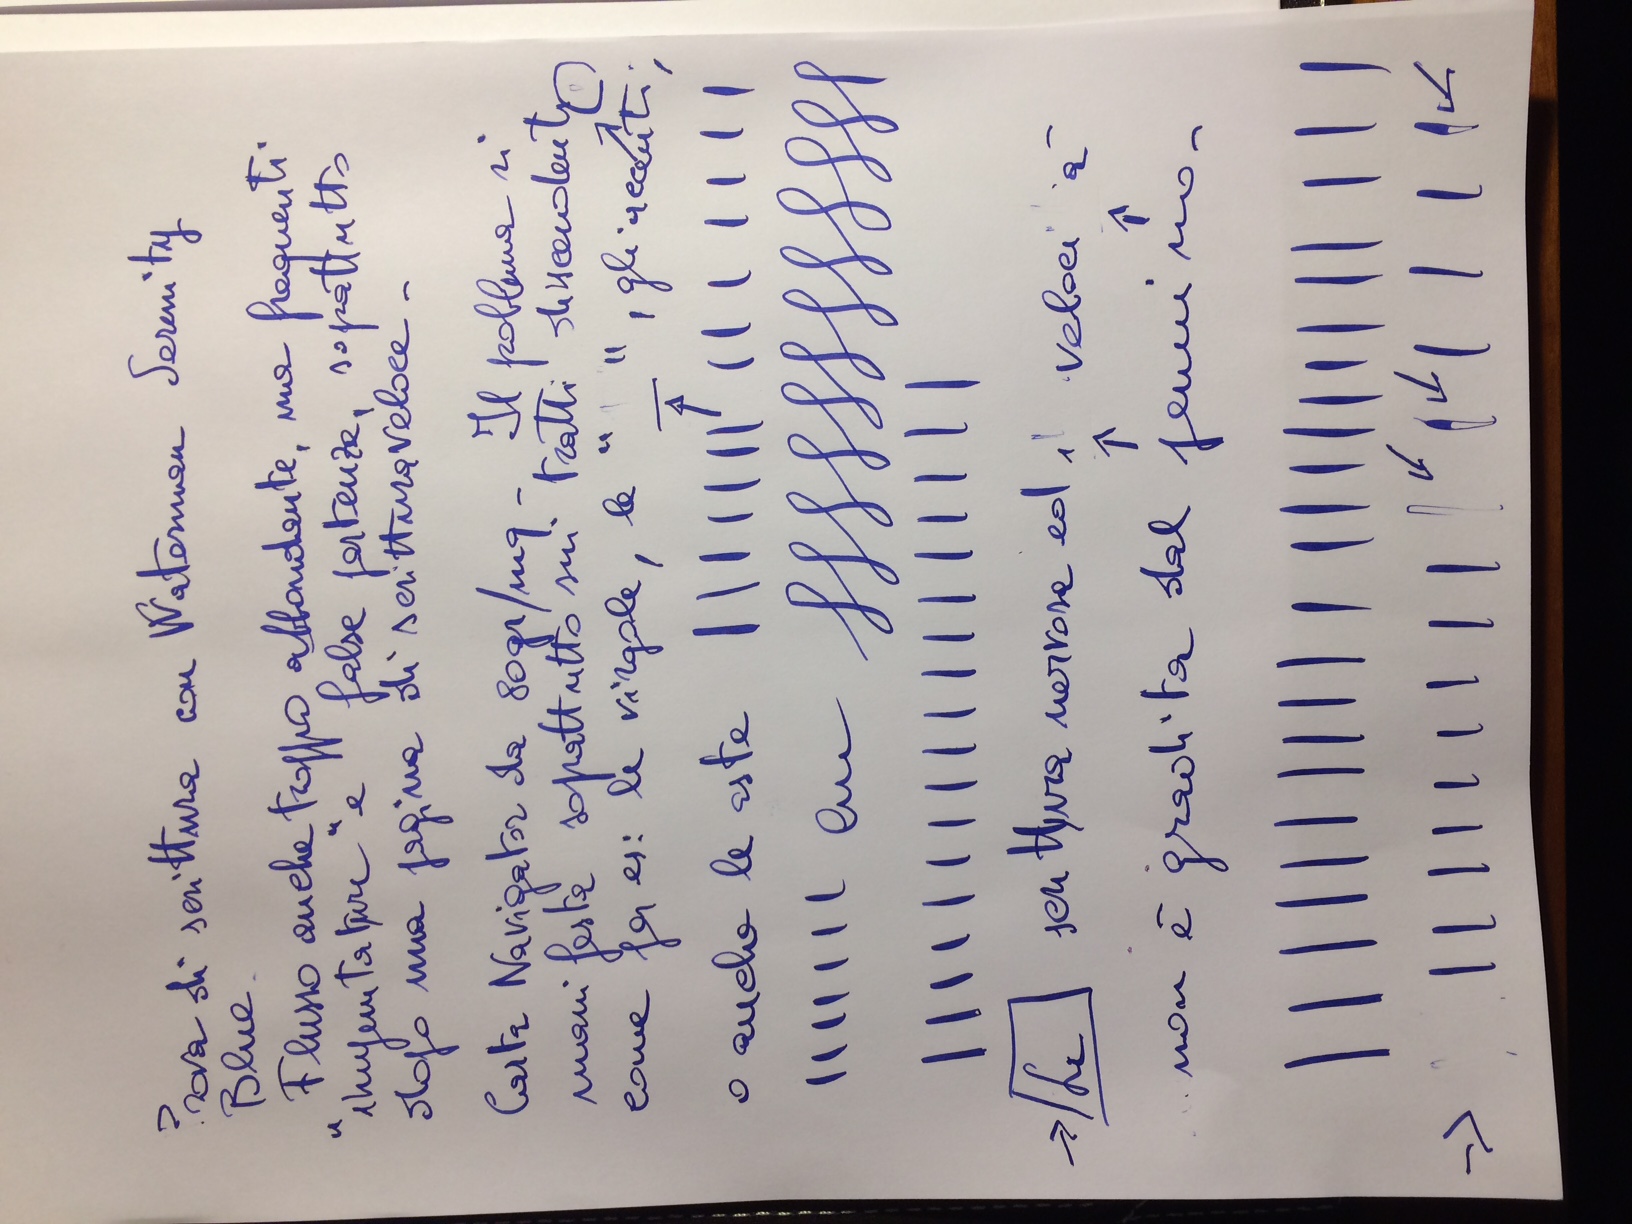 Prova di scrittura con Waterman Serenity
Blue.
Flusso anche troppo abbondante, ma frequenti
"impuntature" e false partenze, soprattutto
dopo una pagina di scrittura veloce -
Carta Navigator da 80gr/mq. - Il problema si
manifesta soprattutto sui tratti discendenti
come per es: le virgole, le " " " ", gli accenti;
o anche le aste
scrittura nervosa ed i veloci à
non è gradita dal pennino -